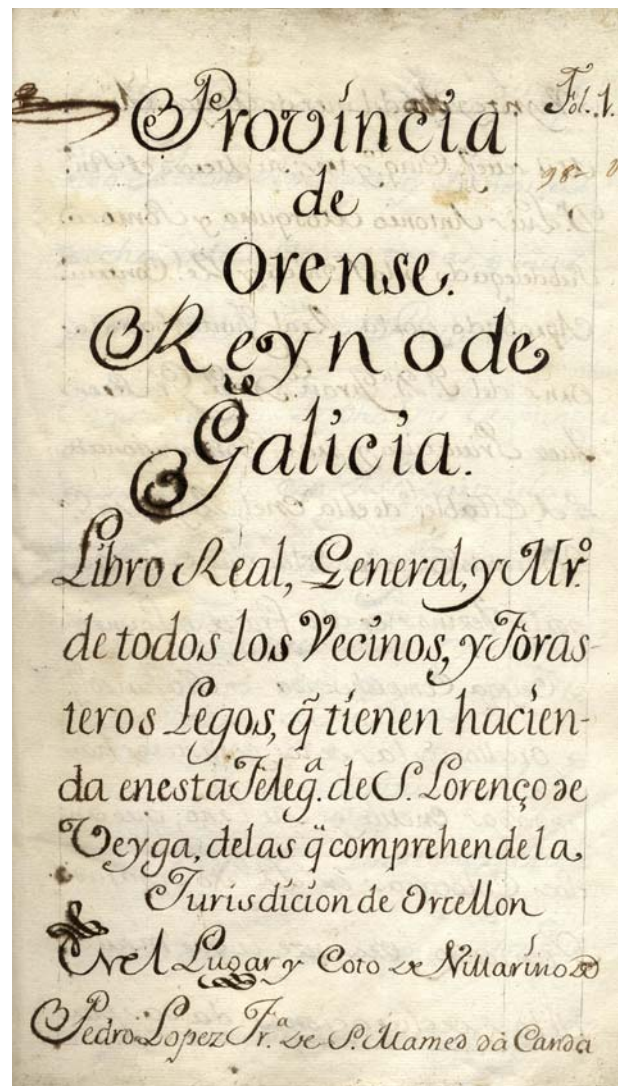 Fol. 1.
Província
de
Orense.
Reyno de
Galicia.
982
Libro Real, General, y Mr.º
de todos los Vecinos, y Foras-
teros Legos, q̃ tienen hacien-
da en esta Feleg.ª de S. Lorenço de
Veyga, de las q̃ comprehende la
Jurisdicion de Orcellon
En el Lugar y Coto de Villarino de
Pedro Lopez Fr.ª de S. Mamed da Canda